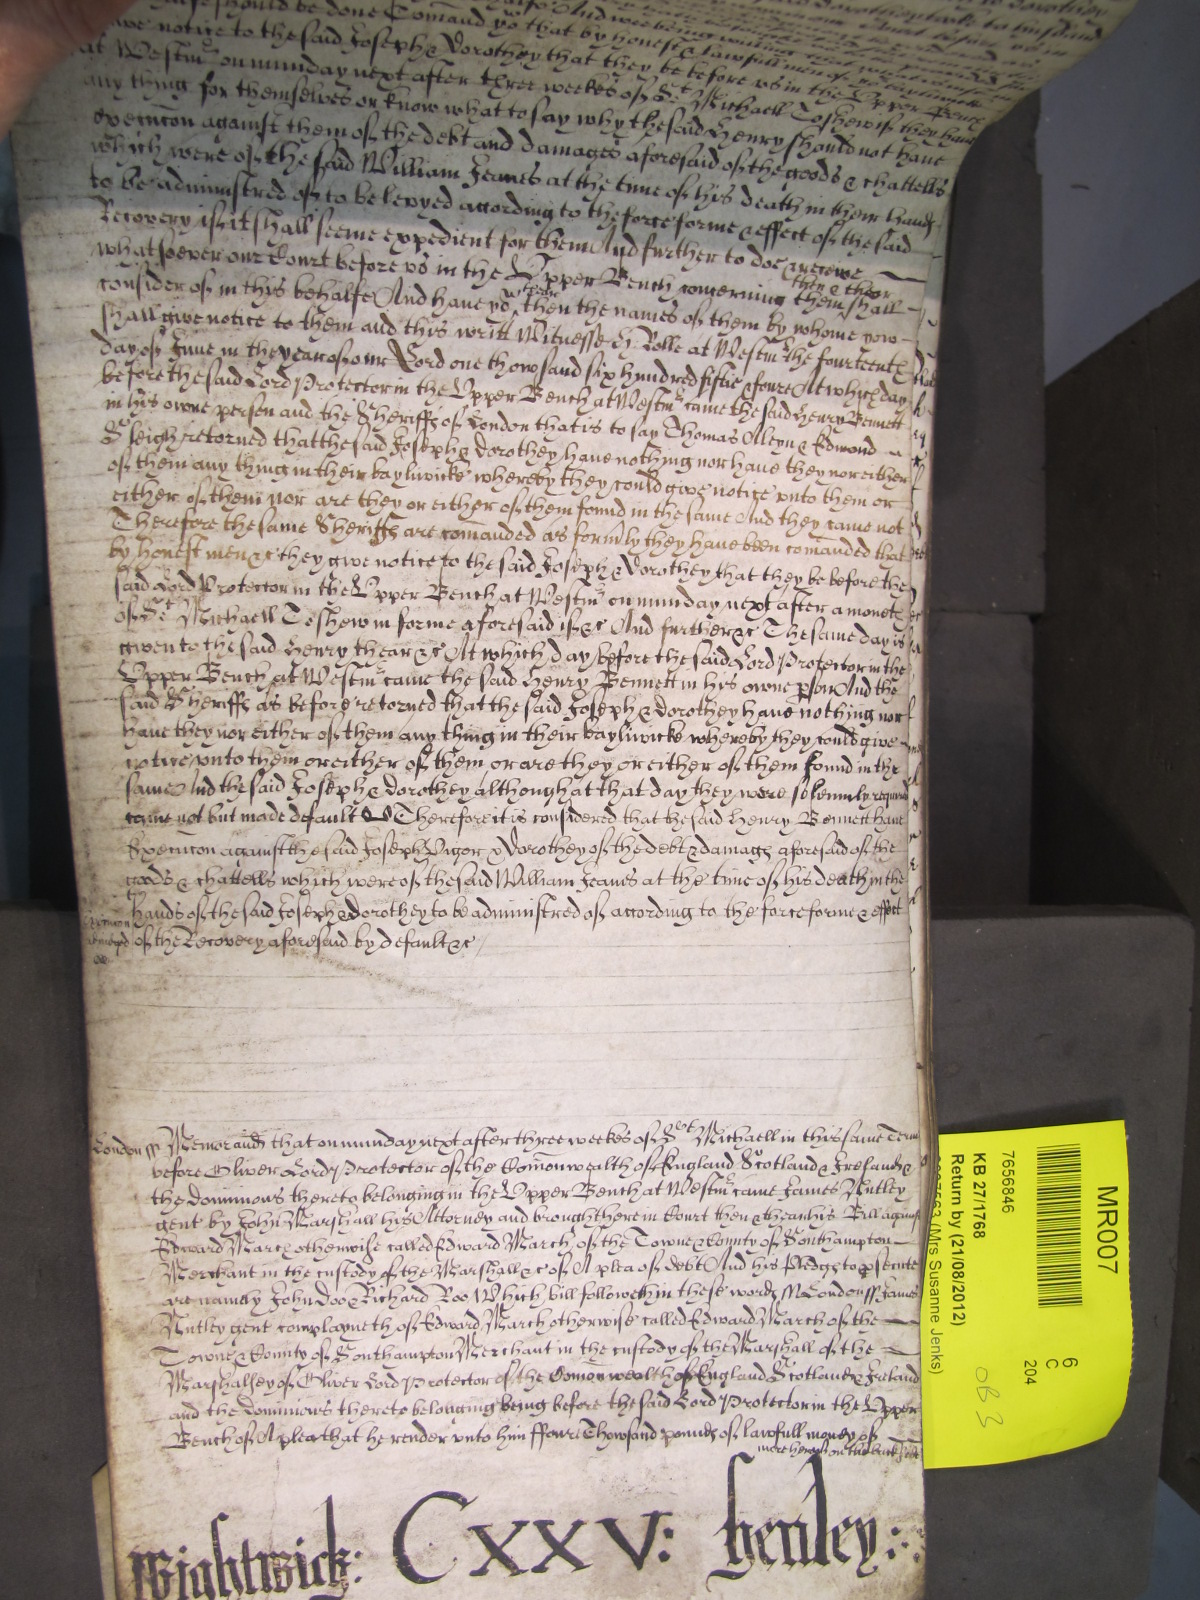 should be done Comand yow that by honest & lawfull men of
notice to the said Joseph & Dorothey that they be before us in the Upper Bench
at Westmr on munday next after three weekes of St Michaell To shew if they have
any thing for themselves or know what to say why the said Henry should not have
execucon against them of the debt and damages aforesaid of the goods & chattells
which were of the said William Jeanes at the time of his death in their hands
to be administred of to be levyed according to the force forme & effect of the said
Recovery if it shall seeme expedient for them And further to doe & receive
whatsoever our Court before us in the Upper Bench concerning them shall
then & there
consider of in this behalfe And have yow there then the names of them by whome yow
shall give notice to them and this writt Witnesse H Rolle at Westmr the fourteenth
day of June in the yeare of our Lord one thowsand six hundred fiftie & foure At which day
before the said Lord Protector in the Upper Bench at Westmr came the said Henry Bennett
in his owne person and the Sheriffs of London that is to say Thomas Aleyn & Edmond
Sleigh retorned that the said Joseph & Dorothey have nothing nor have they nor either
of them any thing in their bayliwicke whereby they could give notice unto them or
either of them nor are they or either of them found in the same And they came not
Therefore the same Sheriffs are comanded as formly they have been comanded that
by honest men &c they give notice to the said Joseph & Dorothey that they be before the
said Lord Protector in the Upper Bench at Westmr on munday next after a moneth
of St Michaell To shew in forme aforesaid if &c And further &c The same day is
given to the said Henry there &c At which day before the said Lord Protector in the
Upper Bench at Westmr came the said Henry Bennett in his owne pson And the
said Sheriffs as before retorned that the said Joseph & Dorothey have nothing nor
have they nor either of them any thing in their bayliwicke whereby they could give
notice unto them or either of them or are they or either of them found in the
same And the said Joseph & Dorothey although at that day they were solemnly required
came not but made default Therefore it is considered that the said Henry Bennett have
Execucon against the said Joseph Vigor & Dorothey of the debt & damages aforesaid of the
goods & chattells which were of the said William Jeanes at the time of his death in the
hands of the said Joseph & Dorothey to be administred of according to the force forme & effect
of the Recovery aforesaid by default &c
London ss Memorand that on munday next after three weekes of St Michaell in this same Terme
before Oliver Lord Protector of the Comonwealth of England Scotland & Ireland &
the dominions thereto belonging in the Upper Bench at Westmr came James Nutley
gent by John Marshall his Attorney and brought here in Court then & there his Bill against
Edward March otherwise called Edward March of the Towne & County of Southampton
Merchant in the custody of the Marshall &c of A plea of debt And his pledges to psecute
are namely John Doo & Richard Roo Which bill followeth in these words ss London ss James
Nutley gent complayneth of Edward March otherwise called Edward March of the
Towne & County of Southampton Merchant in the custody of the Marshall of the
Marshalsey of Oliver Lord Protector of the Comonwealth of England Scotland & Ireland
and the dominions thereto belonging being before the said Lord Protector in the Upper
Bench of A plea that he render unto him ffoure Thowsand pounds of lawfull money of
more hereof on the back side
Wightwick: CXXV: Henley:
MR007
7656846
KB 27/1768
Return by (21/08/2012)
(Mrs Susanne Jenks)
6
C
204
OB 3